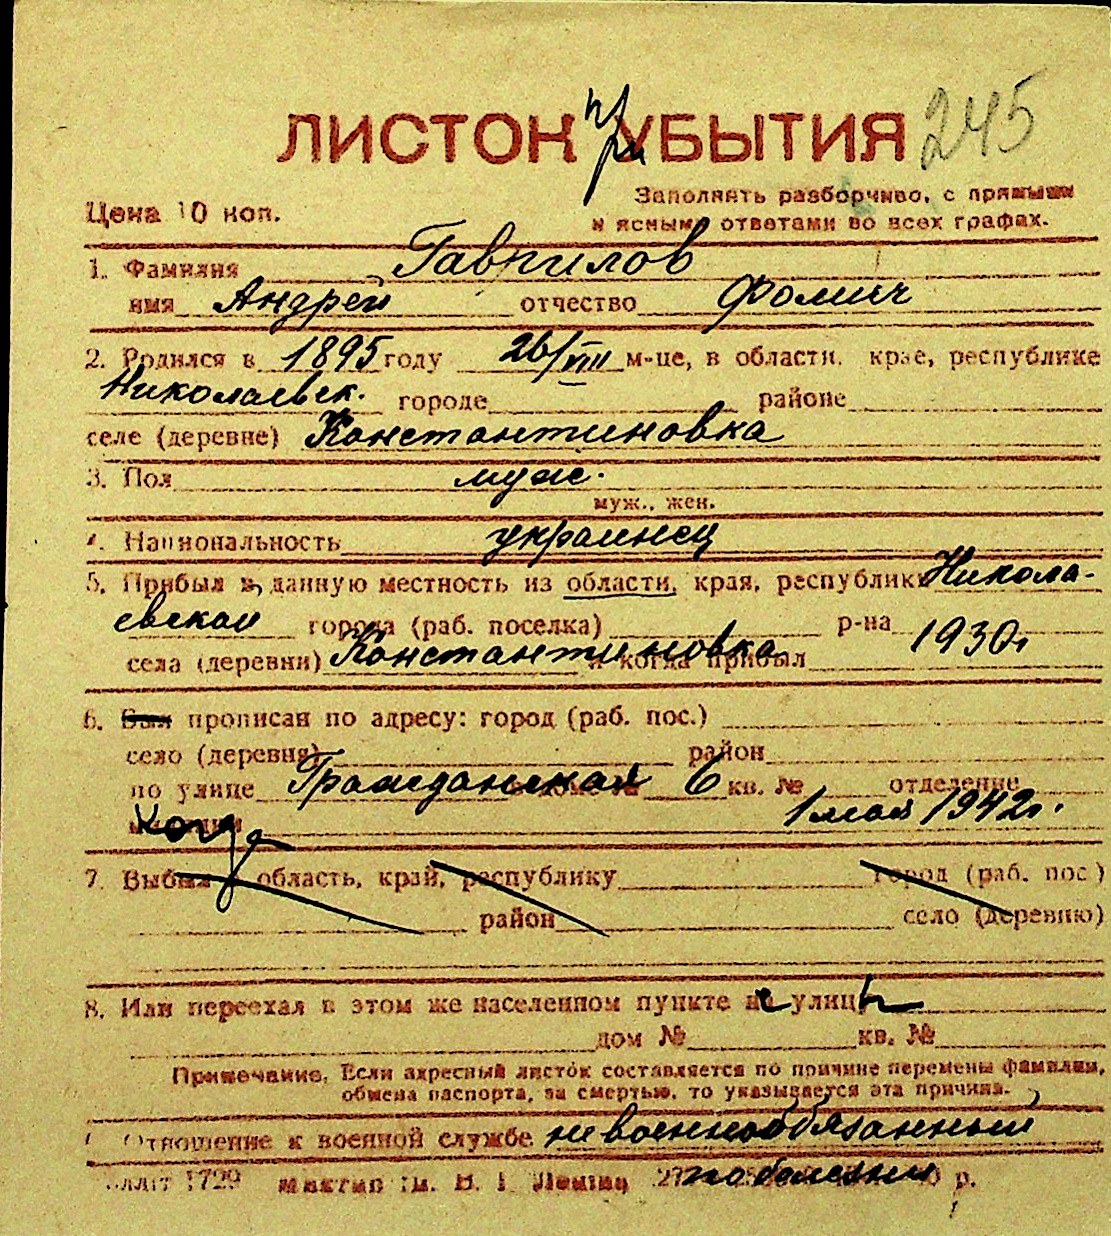 ЛИСТОК при УБЫТИЯ 245
Цена 10 коп.
Заполнять разборчиво, с прямыми
и ясными ответами во всех графах.
1. Фамилия Гаврилов
имя Андрей отчество Фомич
2. Родился в 1895 году 26/VIII м-це, в области, крае, республике
Николаевск. городе районе
селе (деревне) Константиновка
3. Пол муж.
муж., жен.
4. Национальность украинец
5. Прибыл в данную местность из области, края, республики Никола-
евской города (раб. поселка) р-на
села (деревни) Константиновка и когда прибыл 1930г
6. Был прописан по адресу: город (раб. пос.)
село (деревня) район
по улице Гражданская 6 кв. № отделение
Когда 1 мая 1942г.
7. Выбыл в область, край, республику город (раб. пос.)
район село (деревню)
8. Или переехал в этом же населенном пункте с улицы
дом № кв. №
Примечание. Если адресный листок составляется по причине перемены фамилии,
обмена паспорта, за смертью, то указывается эта причина.
Отношение к военной службе невоеннообязанный
1729 Ім. В. І. Леніна по болезни р.